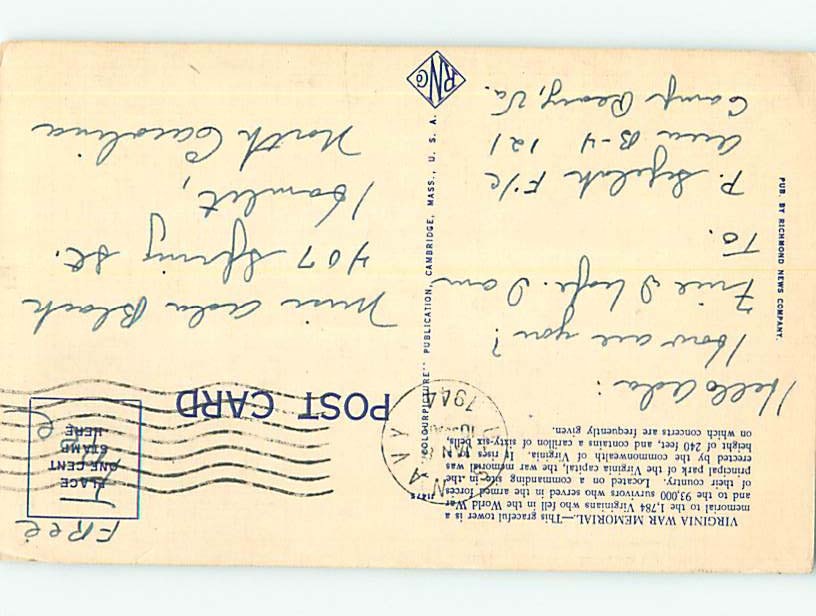 VIRGINIA WAR MEMORIAL.—This graceful tower is a
memorial to the 1,784 Virginians who fell in the World War
and to the 93,000 survivors who served in the armed forces
of their country. Located on a commanding site in the
principal park of the Virginia capital, the war memorial was
erected by the commonwealth of Virginia. It rises to a
height of 240 feet, and contains a carillon of sixty-six bells,
on which concerts are frequently given.
Hello Ada:
How are you?
Fine I hope. I am
To.
P. F/c
Area B-4 121
Camp Peary, Va.
PUB. BY RICHMOND NEWS COMPANY.
"COLOURPICTURE" PUBLICATION, CAMBRIDGE, MASS., U. S. A.
11475
RNCo
NAVY
JAN
1944
POST CARD
Free
PLACE
ONE CENT
STAMP
HERE
Miss Ada Black
407 Spring St.
Hamlet,
North Carolina